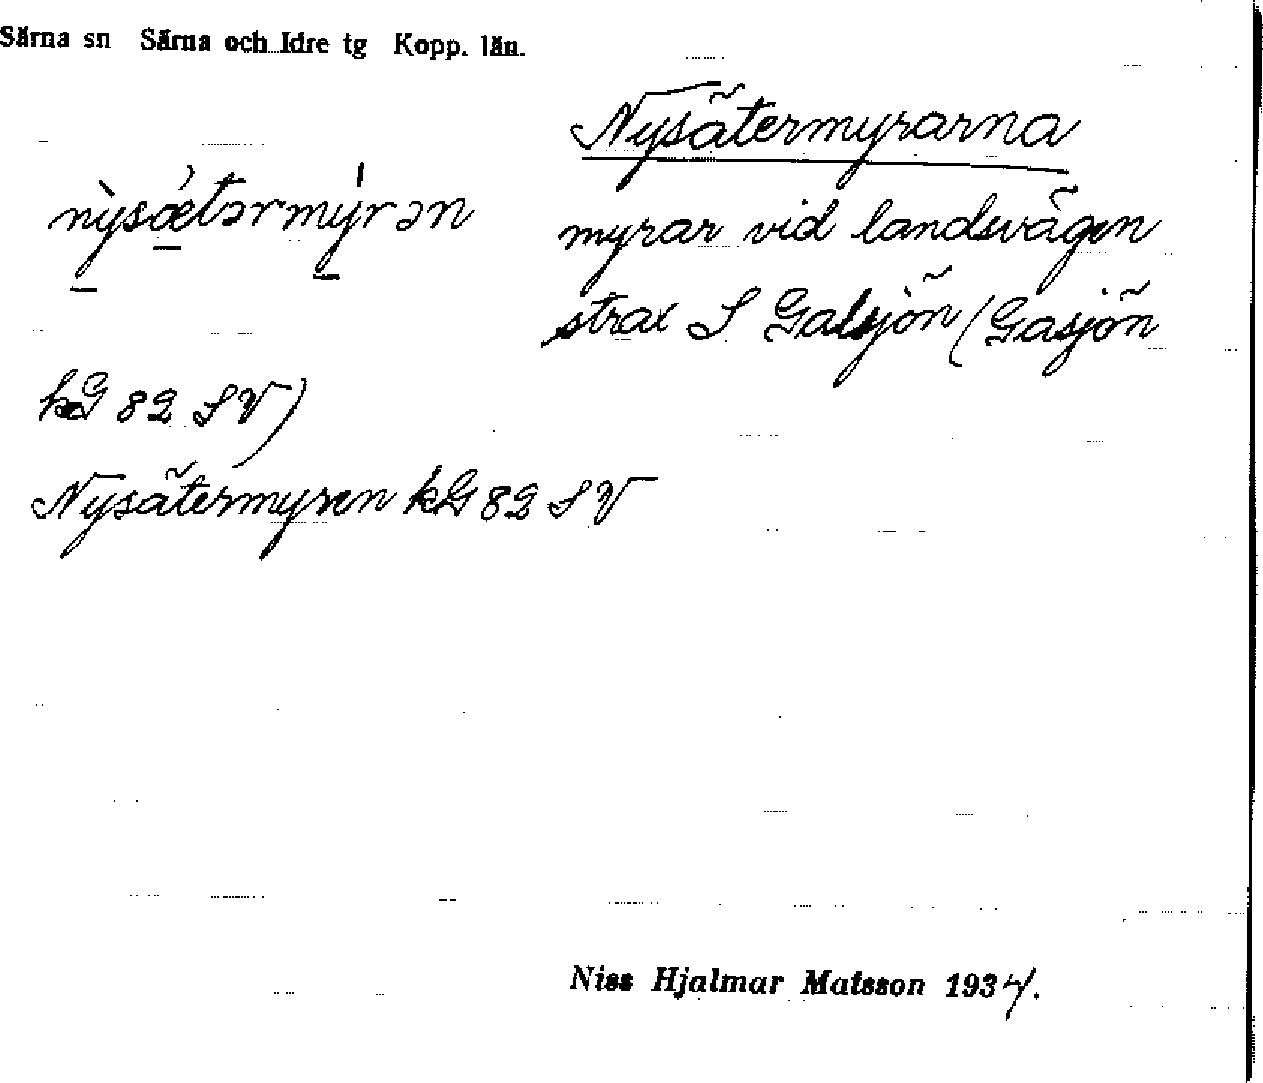 Särna sn Särna och Idre tg Kopp. län.
Nysätermyrarna
nỳsǽtərmýrən
myrar vid landsvägen
strax S Galsjön (Gasjön
kG 82 SV)
Nysätermyren kG 82 SV
Niss Hjalmar Matsson 1934.